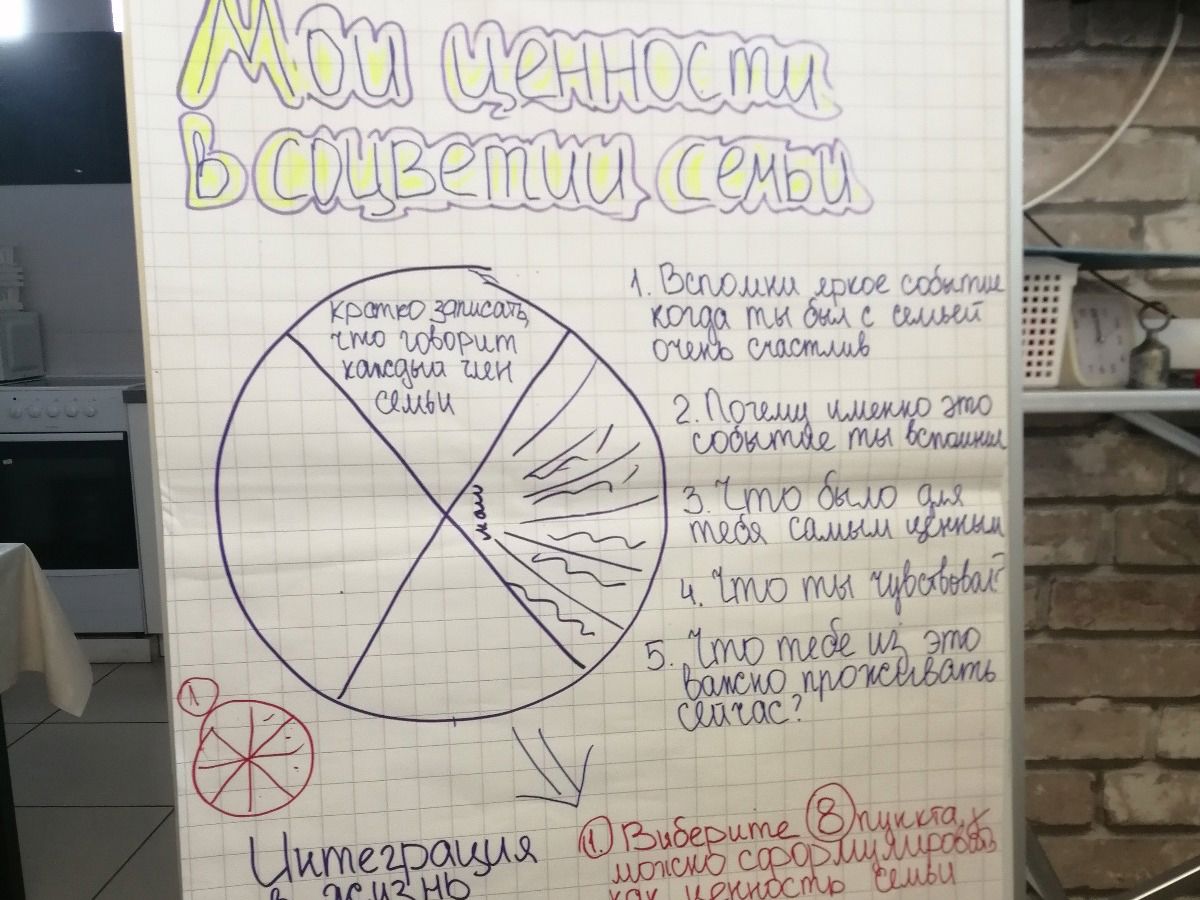 Мои ценности
в соцветии семьи
кратко записать,
что говорит
каждый член
семьи
1. Вспомни яркое событие
когда ты был с семьей
очень счастлив
2. Почему именно это
событие ты вспомнил
3. Что было для
тебя самым ценным
4. Что ты чувствовал?
5. Что тебе из это
важно проживать
сейчас?
1
Интеграция
в жизнь
1 Виберите 8 пункта, х
можно сформулировать
как ценность семьи